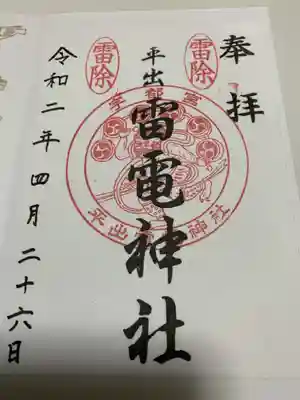 奉拝
雷除
平出
雷電神社
雷除
令和二年四月二十六日
宇都宮
平出 神社